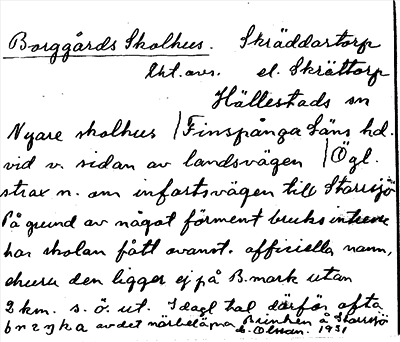 Borggårds Skolhus. Skräddartorp
Lht. avs. el. Skrättorp
Hällestads sn
Nyare skolhus / Finspånga läns hd.
vid v. sidan av landsvägen / Ögl.
strax n. om infartsvägen till Starrsjö
På grund av något förment bruksintresse
har skolan fått ovanst. officiella namn,
ehuru den ligger ej på B. mark utan
2 km. s. ö. ut. I dagl. tal därför ofta
av det närbelägna Brinken å Starrsjö
Olsson. 1931